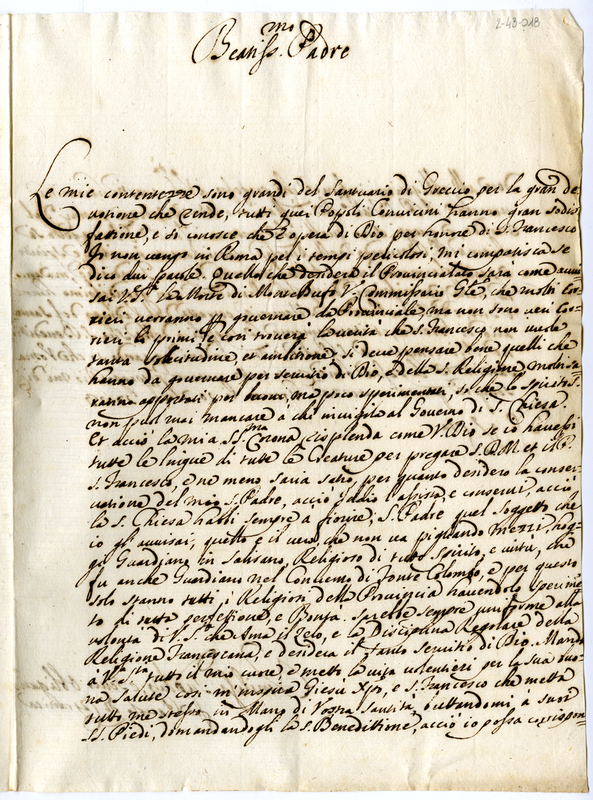 2-43-018
Beatiss.mo Padre
Le mie contentezze sono grandi del Santuario di Greccio per la gran de
uotione che rende, tutti quei Popoli Conuicini hanno gran sodis
fatione, e si conosce che è opera di Dio per honore di S. Francesco
Io non uengo in Roma per i tempi pericolosi, mi compatisca se
dico due parole. Quello che desidera il Prouincialato sarà come auui
sai V. S.tà la Morte di Monte Bufo V. Commissario Gñle, che molti Cor
rieri uerranno p gouernare da Prouinciale, ma non sono ueri Cor=
rieri li primi, e così trouerà la uerità che S. Francesco non uuole
tanta solecitudine, et ambitione, si deue pensare bene quelli che
hanno da gouernare per seruitio di Dio, e della S. Religione, molti sa
ranno apportati per buoni, ma poco sperimentati, so che lo Spirito S.
non può mai mancare à chi inuigila al Gouerno di S. Chiesa.
Et acciò la mia SS.ma Corona risplenda come V. Dio se io hauessi
tutte le lingue di tutte le Creature per pregare S. D. M. et il P.
S. Francesco, e ne meno saria satio per quanto desidero la conser=
uatione del mio S. Padre, acciò Iddio l'assista, e conserui, acciò
la S. Chiesa habbi sempre à fiorire; S. Padre quel soggetto che
io gli auuisai, quello è il uero, che non ua pigliando mezzi, hog=
gi Guardiano in Salisano, Religioso di tutto Spirito, e uirtù, che
fu anche Guardiano nel Conuento di Fonte Colombo, e per questo
solo stanno tutti i Religiosi della Prouincia hauendolo sperime
to di tutta perfettione, e Bontà. sarebbe sempre uniforme alla
uolontà di V. S. che Ama il Zelo, e la Disciplina Regolare della
Religione Francescana, e desidera il santo seruitio di Dio. Mando
à V.ra S.tà tutto il mio cuore, e metto la uita uolentieri per la sua buo=
na salute così m'inspira Giesù Xpo, e S. Francesco che metta
tutto me stesso in Mano di Vostra Santità, buttandomi à suoi
SS. Piedi, domandandogli la S. Benedittione, acciò io possa corrispon=